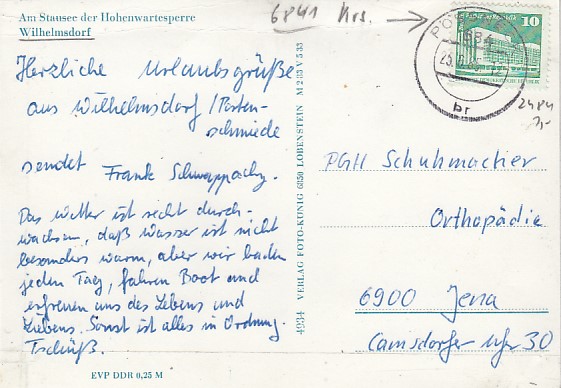 Am Stausee der Hohenwartesperre
Wilhelmsdorf
6841 Krs.
Herzliche Urlaubsgrüße
aus Wilhelmsdorf/Porten-
schmiede
sendet Frank
Das Wetter ist recht durch-
wachsen, daß Wasser ist nicht
besonders warm, aber wir baden
jeden Tag, fahren Boot und
erfreuen uns des Lebens und
Liebens. Sonst ist alles in Ordnung.
Tschüß.
EVP DDR 0,25 M
4934 VERLAG FOTO-KÜNIG 6850 LOBENSTEIN M 2/13 V 5 33
10
684
br
PGH Schuhmacher
Orthopädie
6900 Jena
Camsdorfer Ufer 30